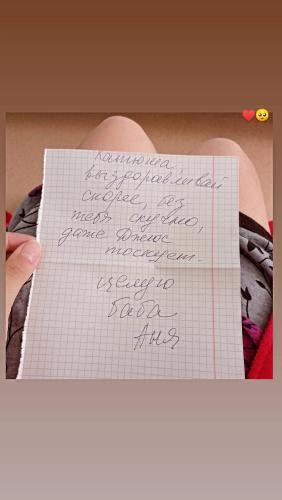 Катюша
выздоравливай
скорее, без
тебя скучно,
даже Джеюс
тоскует.
целую
баба
Аня